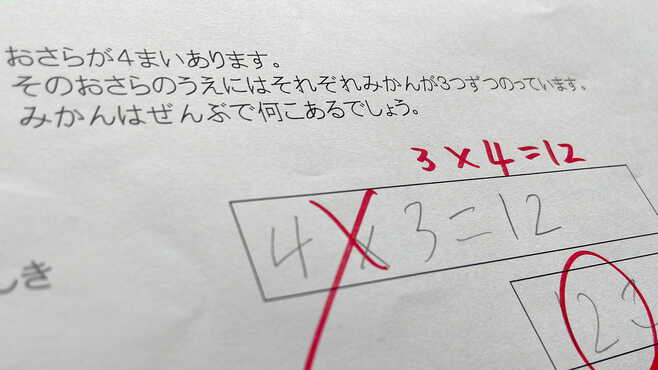 おさらが4まいあります。
そのおさらのうえにはそれぞれみかんが3つずつのっています。
みかんはぜんぶで何こあるでしょう。
3×4=12
4×3=12
しき
12こ